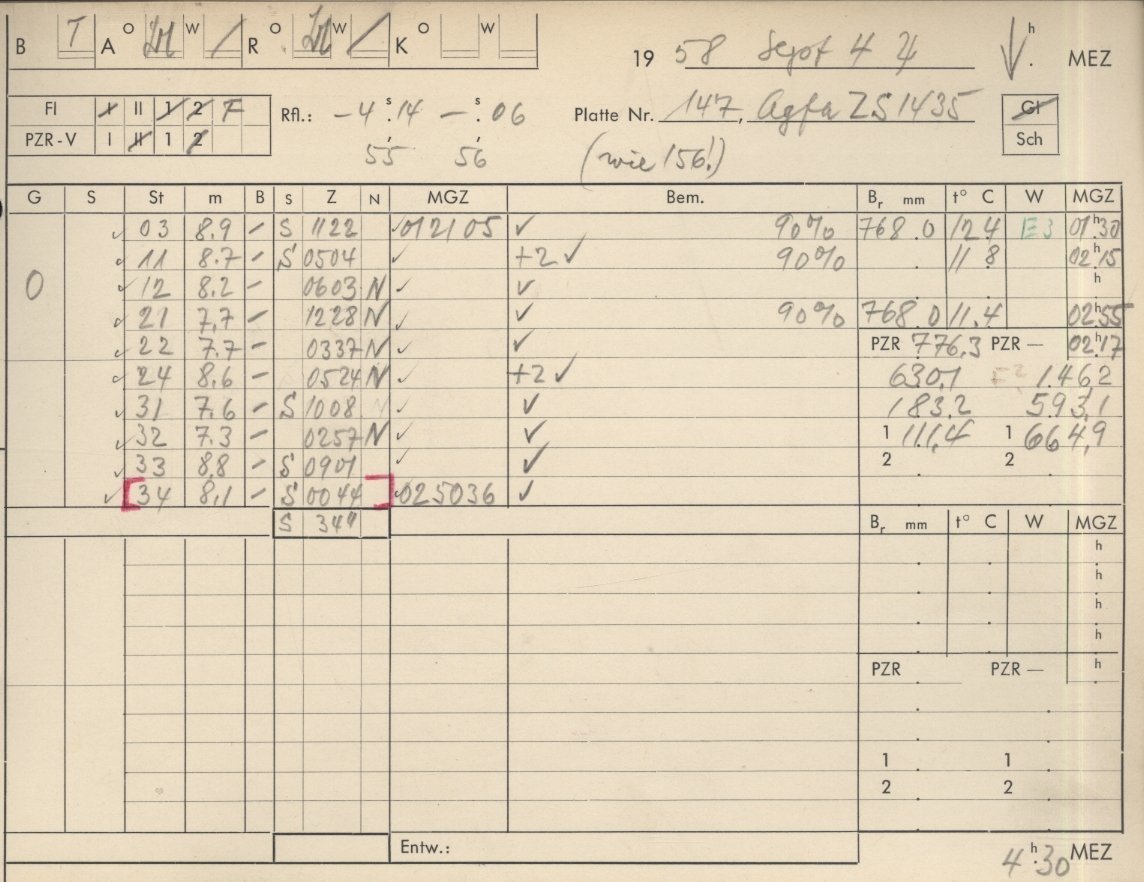 B T A O W / R O W / K O W
19 58 Sept 4 h MEZ
Fl I II 1 2 F Rfl.: -4 s 14 - s 06 Platte Nr. 147, Agfa ZS 1435 Gl
PZR-V I II 1 2 55 56 (wie 156!) Sch
G S St m B S Z N MGZ Bem. Br mm t° C W MGZ
✓ 03 8.9 - S 1122 ✓012105 ✓ 90% 768.0 12.4 E3 01h30
✓ 11 8.7 - S 0504 ✓ +2 ✓ 90% 11.8 02h15
0 ✓ 12 8.2 - 0603 N ✓ ✓ h
✓ 21 7.7 - 1228 N ✓ ✓ 90% 768.0 11.4 02h55
✓ 22 7.7 - 0337 N ✓ ✓ PZR 776.3 PZR — 02h17
✓ 24 8.6 - 0524 N ✓ +2 ✓ 630.1 1.462
✓ 31 7.6 - S 1008 ✓ ✓ 183.2 593.1
✓ 32 7.3 - 0257 N ✓ ✓ 1 111.4 1 664.9
✓ 33 8.8 - S 0901 ✓ ✓ 2 2
✓ [34 8.1 - S 0044] ✓025036 ✓
S 34" Br mm t° C W MGZ
h
h
h
h
PZR PZR — h
1 1
2 2
Entw.: 4h30 MEZ